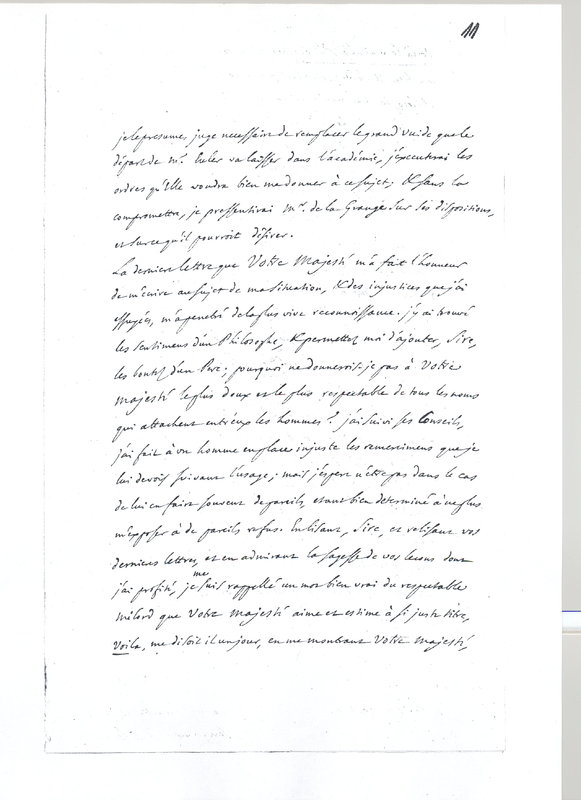 11
je le presume, juge necessaire de remplacer le grand vuide que le
départ de mr. Euler va laisser dans l'académie, j'executerai les
ordres qu'Elle voudra bien me donner à ce sujet; & sans la
compromettre, je pressentirai Mr. de la Grange sur ses dispositions,
et sur ce qu'il pourroit désirer.
La derniere lettre que Votre Majesté m'a fait l'honneur
de m'écrire au sujet de ma situation, & des injustices que j'ai
essuyées, m'a penetré de la plus vive reconnoissance. j'y ai trouvé
les sentimens d'un Philosophe, & permettez moi d'ajouter, Sire,
les bontés d'un Pere; pourquoi ne donnerois-je pas à Votre
Majesté le plus doux et le plus respectable de tous les noms
qui attachent entr'eux les hommes? j'ai suivi ses Conseils,
j'ai fait à un homme en place injuste les remercimens que je
lui devois suivant l'usage; mais j'espere n'être pas dans le cas
de lui en faire souvent de pareils, etant bien determiné à ne plus
m'exposer à de pareils refus. En lisant, Sire, et relisant vos
dernieres lettres, et en admirant la sagesse de vos lecons dont
j'ai profité, je me suis rappellé un mot bien vrai du respectable
Milord que Votre Majesté aime et estime à si juste titre,
Voila, me disoit il un jour, en me montrant Votre Majesté,